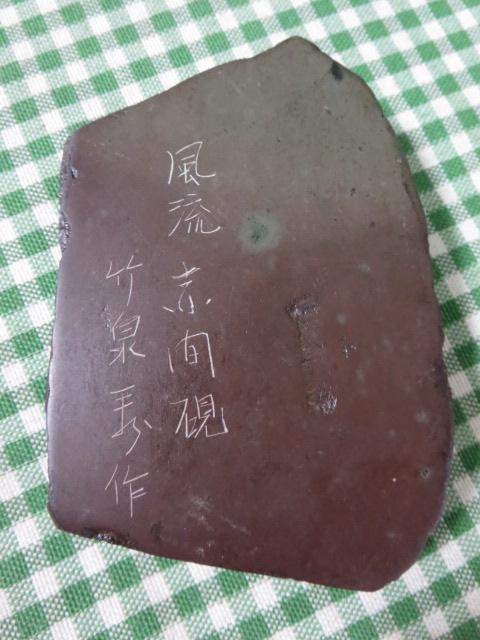 風流 赤間硯
竹泉 作